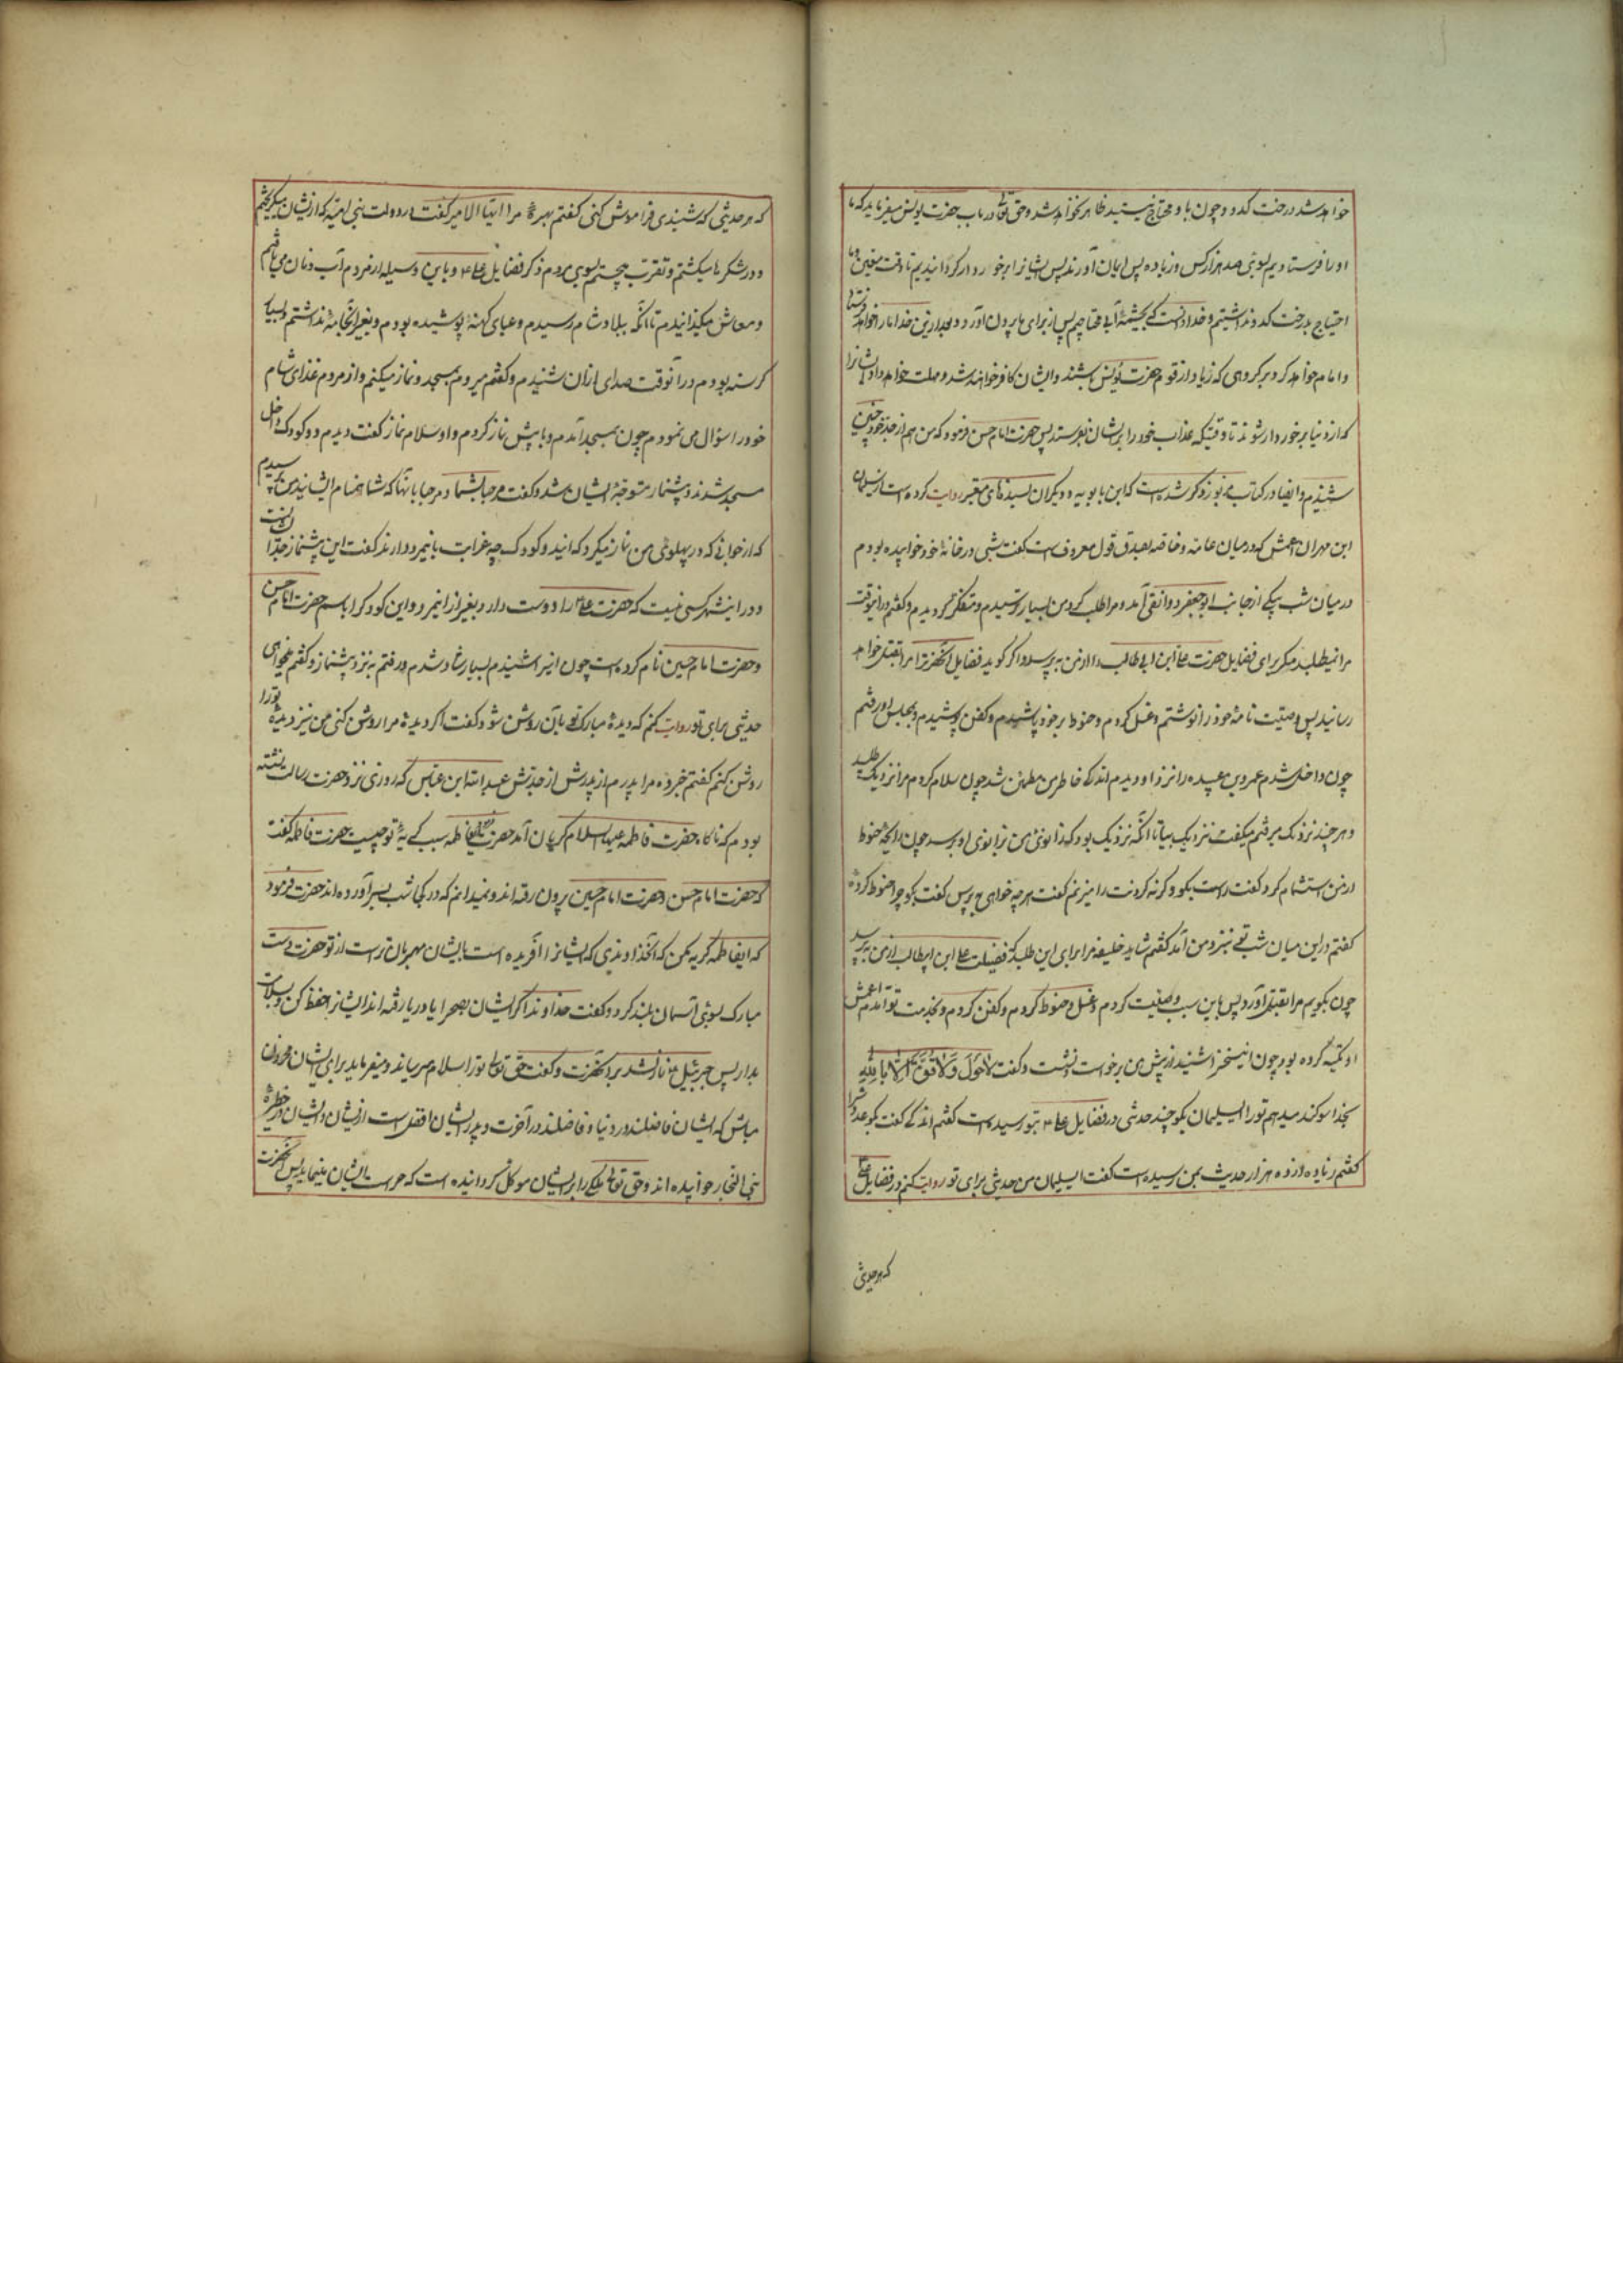 خواهد شد درخت كدو و چون باو محتاج نيستيد ظاهر نخواهد شد و حق تعالی در باب حضرت يونس ميفرمايد كه ما
او را فرستاديم بسوی صد هزار كس و زياده پس ايمان آوردند پس ايشانرا برخوردار گردانيديم تا وقت معين و ما
احتياج بدرخت كدو نداشتيم و خدا دانست كه بچشمه آبی محتاجيم پس از برای ما بيرون آورد و بعد ازين خدا ما را خواهد فرستاد
و اما م خواهد كرد بر گروهی كه زياد از قوم حضرت يونس باشند و ايشان كافر خواهند شد و مهلت خواهد داد ايشانرا
كه از دنيا برخوردار شوند تا وقتيكه عذاب خود را بر ايشان بفرستد پس حضرت امام حسن فرمود كه من هم از جد خود چنين
شنيدم و ايضا در كتاب مزبور ذكر شده است كه ابن بابويه و ديگران بسندهای معتبر روايت كرده است از سليمان
ابن مهران اعمش كه در ميان عامه و خاصه بصدق قول معروف است گفت شبی در خانه خود خوابيده بودم
در ميان شب پيكی از جانب ابو جعفر دوانقی آمد و مرا طلب كرد من بسيار ترسيدم و متفكر گرديدم و گفتم در اينوقت
مرا نميطلبد مگر برای فضايل حضرت علی ابن ابی طالب كه از من بپرسد و اگر گويد فضايل آنحضرترا مرا بقتل خواهد
رسانيد پس وصيت نامه خود را نوشتم و غسل كردم و حنوط بر خود پاشيدم و كفن پوشيدم و بمجلس او رفتم
چون داخل شدم عمرو بن عبيده را نزد او ديدم اندكی خاطر من مطمئن شد چون سلام كردم مرا نزديك طلبيد
و هر چند نزديك ميرفتم ميگفت نزديك بيا تا آنكه نزديك بود كه زانوی من بزانوی او برسد چون رايحه حنوط
از من استشمام كرد گفت راست بگو و گرنه گردنت را ميزنم گفت هر چه خواهی بپرس گفت بگو چرا حنوط كرده
گفتم در اين ميان شب كه نزد من آمد گفتم شايد خليفه مرا برای اين طلبد كه فضيلت علی ابن ابيطالب از من بپرسد
چون بگويم مرا بقتل آورد پس باين سبب وصيت كردم و غسل و حنوط كردم و كفن كردم و بخدمت تو آمدم اعمش
او تكيه كرده بود چون اين سخن را شنيد از پيش من برخواست و نشست و گفت لا حَولَ وَلا قُوَّةَ اِلّا بِاللهِ
بخدا سوگند ميدهم تو را ای سليمان بگو چند حديثی در فضايل علی ع بتو رسيده است گفتم اندكی گفت بگو عددش را
گفتم زياده از ده هزار حديث بمن رسيده است گفت ای سليمان من حديثی برای تو روايت كنم در فضايل علی
كه هر حديثی
كه هر حديثی كه شنيدی فراموش كنی گفتم بهره مرا ايها الامير گفت در دولت بنی اميه كه از ايشان ميگريختم
و در شكر ما ميگشتم و تقرب جستم بسوی مردم ذكر فضايل علی ع و باين وسيله از مردم آب و نان می يافتم
و معاش ميگذرانيدم تا آنكه ببلاد شام رسيدم و عبای كهنه پوشيده بودم و بغير آن جامه نداشتم و بسيار
گرسنه بودم در آنوقت صدای اذان شنيدم و گفتم ميروم بمسجد و نماز ميكنم و از مردم غذای شام
خود را سؤال می نمودم چون بمسجد آمدم و با پيش نماز كردم و او سلام نماز گفت ديدم دو كودك داخل
مسجد شدند و پيشنماز متوجه ايشان شد و گفت مرحبا بشما و مرحبا بآنها كه شما همنام ايشانيد من پرسيدم
كه از جوانی كه در پهلوی من نماز ميكرد كه ايندو كودك چه قرابت باينمرد دارند گفت اين پيشنماز جد ايشانست
و در اينشهر كسی نيست كه حضرت علی ع را دوست دارد بغير از اينمرد و اين كودك را باسم حضرت امام حسن
و حضرت امام حسين نام كرده است چون اين را شنيدم بسيار شاد شدم و رفتم به نزد پيشنماز و گفتم ميخواهی
حديثی برای تو روايت كنم كه ديده مبارك تو بآن روشن شود گفت اگر ديده مرا روشن كنی من نيز ديده تو را
روشن كنم گفتم خبر ده مرا پدرم از پدرش از جدش عبد الله ابن عباس كه روزی نزد حضرت رسالت نشسته
بودم كه ناگاه حضرت فاطمه عليها السلام گريان آمد حضرت گفت ای فاطمه سبب گريه تو چيست حضرت فاطمه گفت
كه حضرت امام حسن و حضرت امام حسين بيرون رفته اند و نميدانم كه در كجا شب بسر آورده اند حضرت فرمود
كه ای فاطمه گريه مكن كه آنخداوندی كه ايشانرا آفريده است بايشان مهربان تر است از تو حضرت دست
مبارك بسوی آسمان بلند كرد و گفت خداوندا اگر ايشان بصحرا يا دريا رفته اند ايشانرا حفظ كن و بسلامت
بدار پس جبرئيل ع نازل شد بر آنحضرت و گفت حق تعالی تو را سلام ميرساند و ميفرمايد برای ايشان محزون
مباش كه ايشان فاضلند در دنيا و فاضلند در آخرت و پدر ايشان افضل است از ايشان و ايشان در حظيره
بنی النجار خوابيده اند و حق تعالی ملكی را بر ايشان موكل گردانيده است كه حراست ايشان مينمايد پس آنحضرت